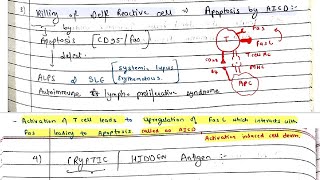 3) Killing of Self Reactive cell → Apoptosis by AICD:-
↓ by
Apoptosis [CD95/Fas]
↓ defect.
ALPS & SLE [systemic lupus erythematous.
Autoimmune lympho proliferative syndrome
Fas
T
Fas L
T cell
CD28
APC
- Activation of T cell leads to Upregulation of Fas L which interacts with
Fas leading to Apoptosis called as AICD
Activation induced cell death.
4) CRYPTIC / HIDDEN Antigen :-